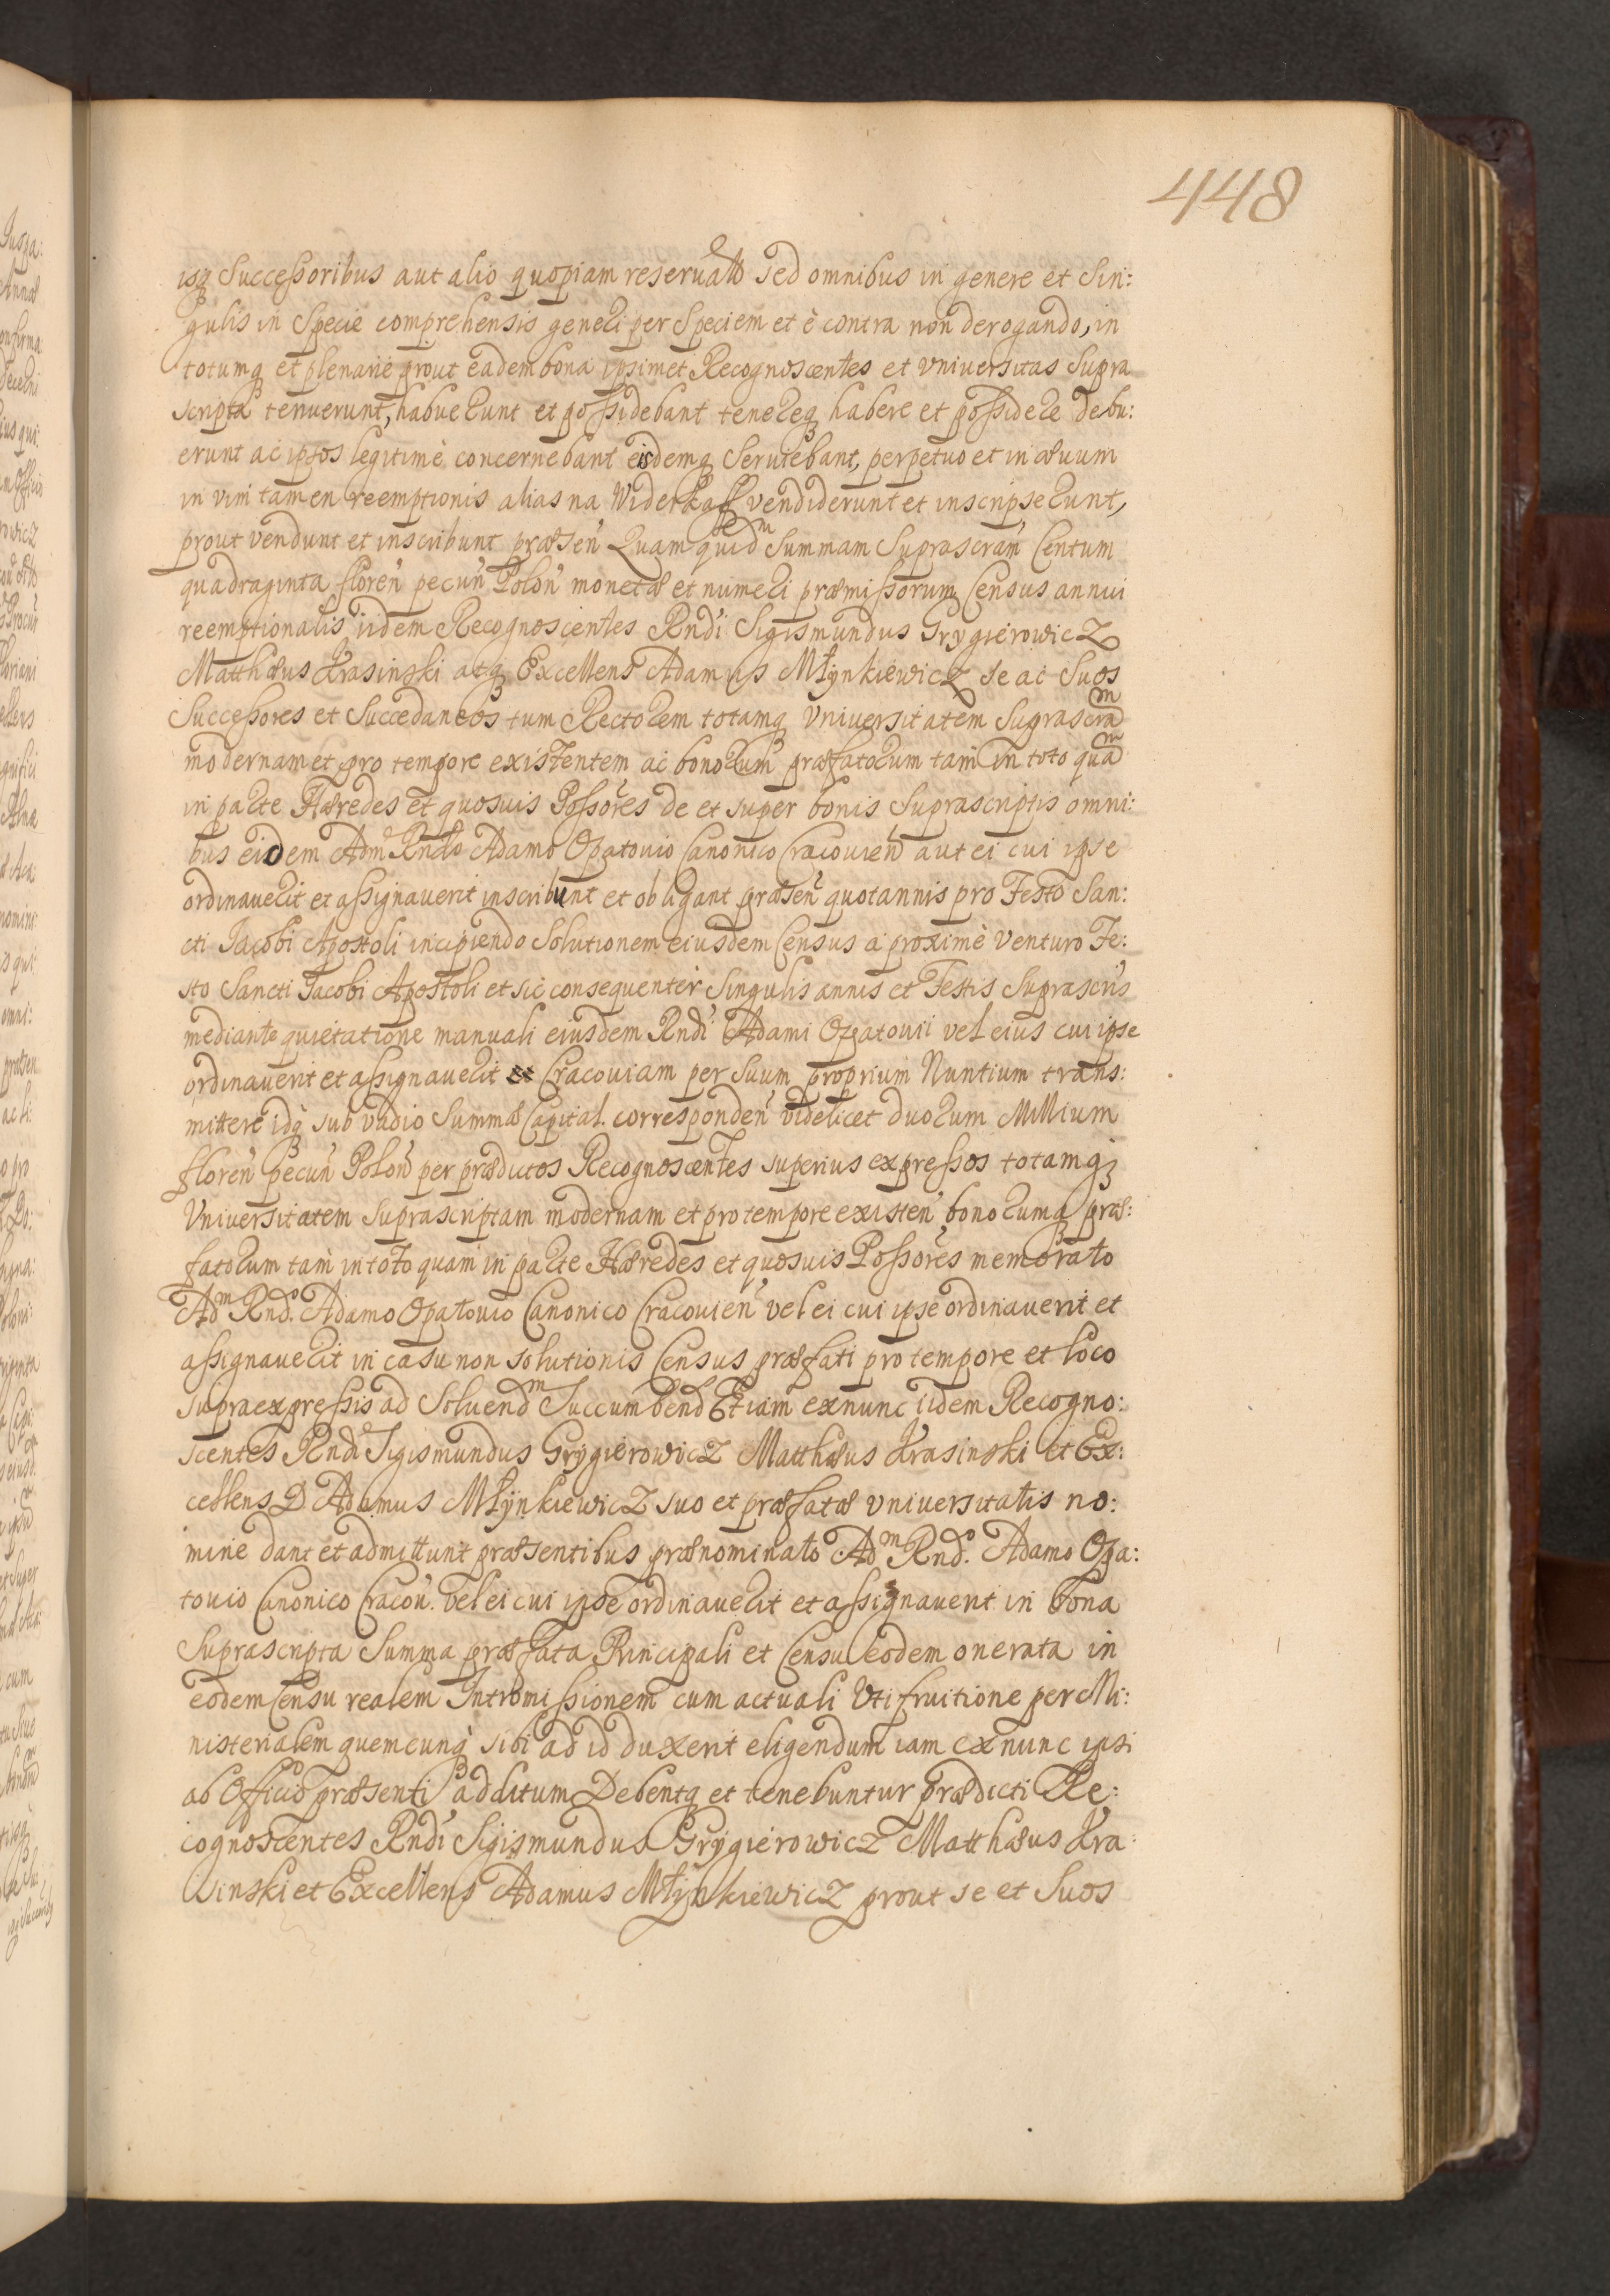 448
isq Successoribus aut alio quopiam reseruato sed omnibus in genere et Sin:
gulis in Specie comprehensis generi per Speciem et è contra non derogando, in
totumq et plenariè prout eadem bona ipsimet Recognoscentes et Vniversitas Supra
scripta tenuerunt, habuerunt et possidebant tenereq habere et possidere debu:
erunt ac ipsos legitimè concernebant eisdemq Seruiebant, perpetuo et in æuum
in vim tamen reemptionis alias na Widerkaff vendiderunt et inscripserunt,
prout vendunt et inscribunt præsen̄ Quam quidem Summam Suprascram̄ Centum
quadraginta floren̄ pecun̄ Polon̄ monetæ et numeri præmissorum Census annui
reemptionalis iidem Recognoscentes Rndi Sigismundus Grygierowicz
Matthæus Krasinski atq Excellens Adamus Młynkiewicz se ac Suos
Successores et Succedaneos tum Rectorem totamq Vniversitatem Suprascram
modernam et pro tempore existentem ac bonorum præfatorum tam in toto quam
in parte Hæredes et quosuis Possōres de et super bonis Suprascriptis omni:
bus eidem Adm Rndo Adamo Opatouio Canonico Cracouien̄ aut ei cui ipse
ordinauerit et assignauerit inscribunt et obligant præsen̄ quotannis pro Festo San:
cti Jacobi Apostoli incipiendo Solutionem eiusdem Census a proximè Venturo Fe:
sto Sancti Jacobi Apostoli et sic consequenter Singulis annis et Festis Suprascris
mediante quietatione manuali eiusdem Rndi Adami Opatouii vel eius cui ipse
ordinauerit et assignauerit et Cracouiam per Suum proprium Nuntium trans:
mittere idq sub vadio Summæ Capital. corresponden̄ videlicet duorum Millium
floren̄ pecun̄ Polon̄ per prædictos Recognoscentes superius expressos totamq
Vniversitatem Suprascriptam modernam et pro tempore existen̄ bonorumq præ:
fatorum tam in toto quam in parte Hæredes et quosuis Possōres memorato
Adm Rndo. Adamo Opatouio Canonico Cracouien̄ vel ei cui ipse ordinauerit et
assignauerit in casu non solutionis Census præfati pro tempore et loco
supraexpressis ad Soluendm Succumbend Etiam exnunc iidem Recogno:
scentes Rndi Sigismundus Grygierowicz Matthæus Krasinski et Ex:
cellens D Adamus Młynkiewicz suo et præfatæ vniversitatis no:
mine dant et admittunt præsentibus prænominato Adm Rndo. Adamo Opa:
touio Canonico Cracou̅. vel ei cui ipse ordinauerit et assignauerit in bona
Suprascripta Summa præfata Principali et Censu eodem onerata in
eodem Censu realem Intromissionem cum actuali Vtifruitione per Mi:
nisterialem quemcunq sibi ad id duxerit eligendum iam exnunc ipsi
ab Officio præsenti additum Debentq et tenebuntur prædicti Re:
cognoscentes Rndi Sigismundus Grygierowicz Matthæus Kra:
sinski et Excellens Adamus Młynkiewicz prout se et Suos